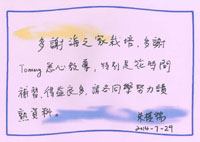 多謝海之家栽培,多謝
Tommy悉心教導,特別是花時間
補習,得益良多,讓各同學努力績
熟資料。
2014-7-29